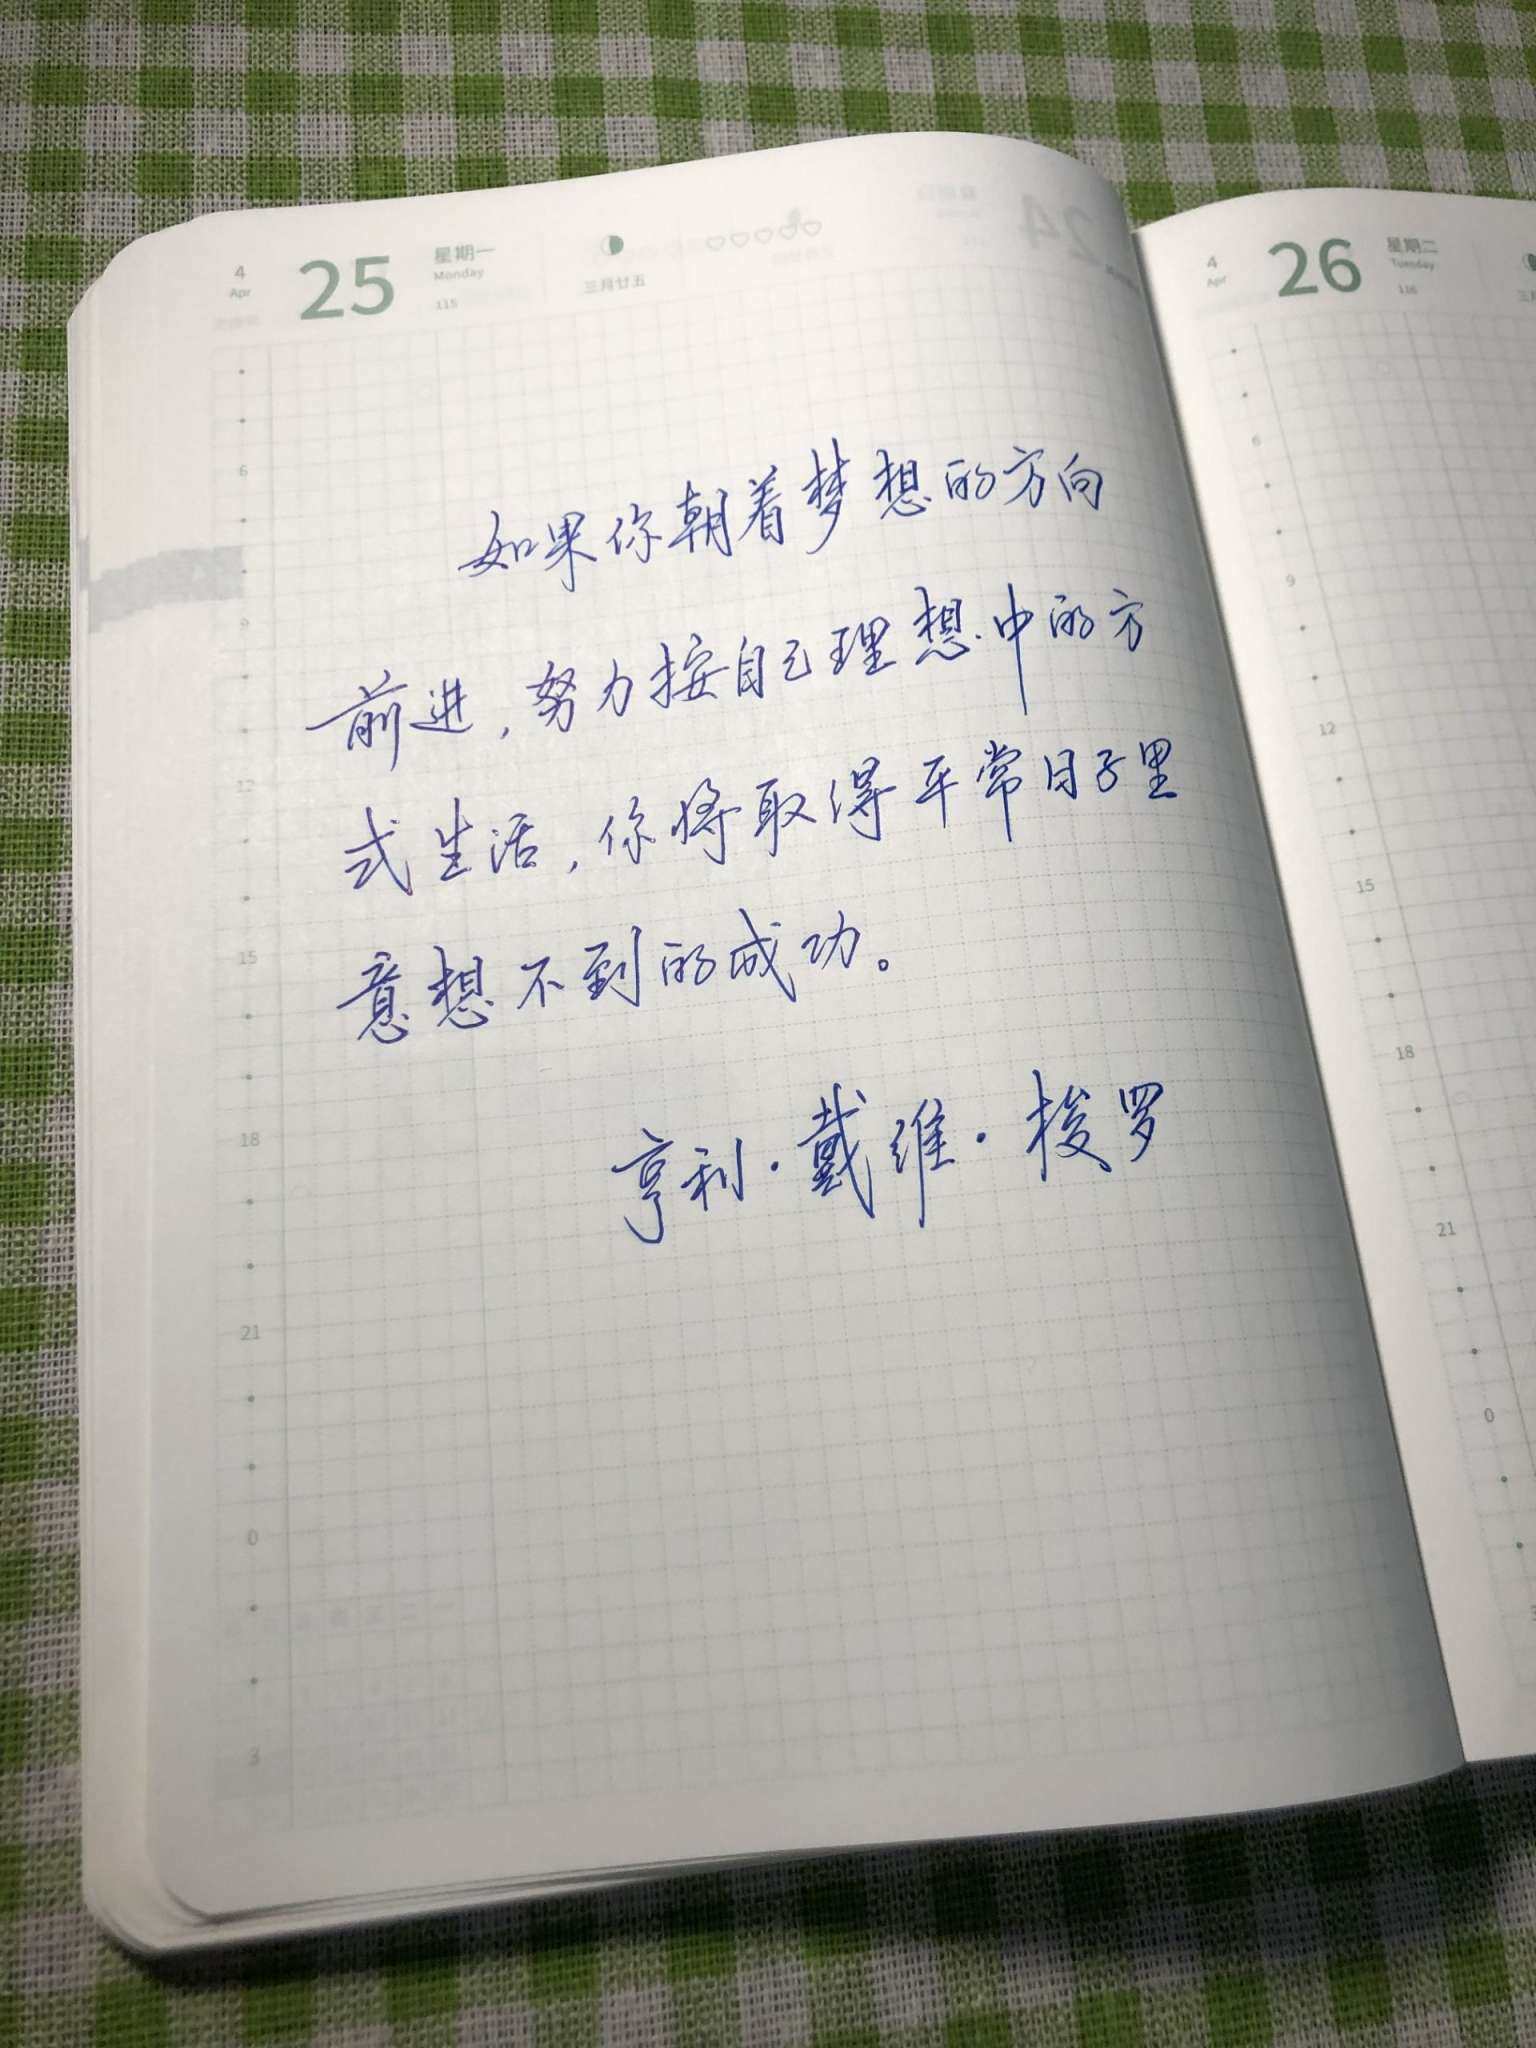 4
Apr
25
星期一
Monday
115
三月廿五
24
6
如果你朝着梦想的方向
前进，努力按自己理想中的方
式生活，你将取得平常日子里
意想不到的成功。
亨利·戴维·梭罗
9
12
15
18
21
0
3
4
Apr
26
星期二
Tuesday
116
6
9
12
15
18
21
0